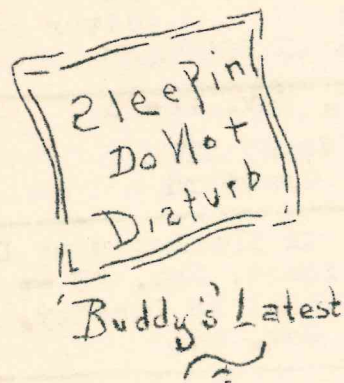 Sleepin
Do Not
Disturb
'Buddy's' Latest